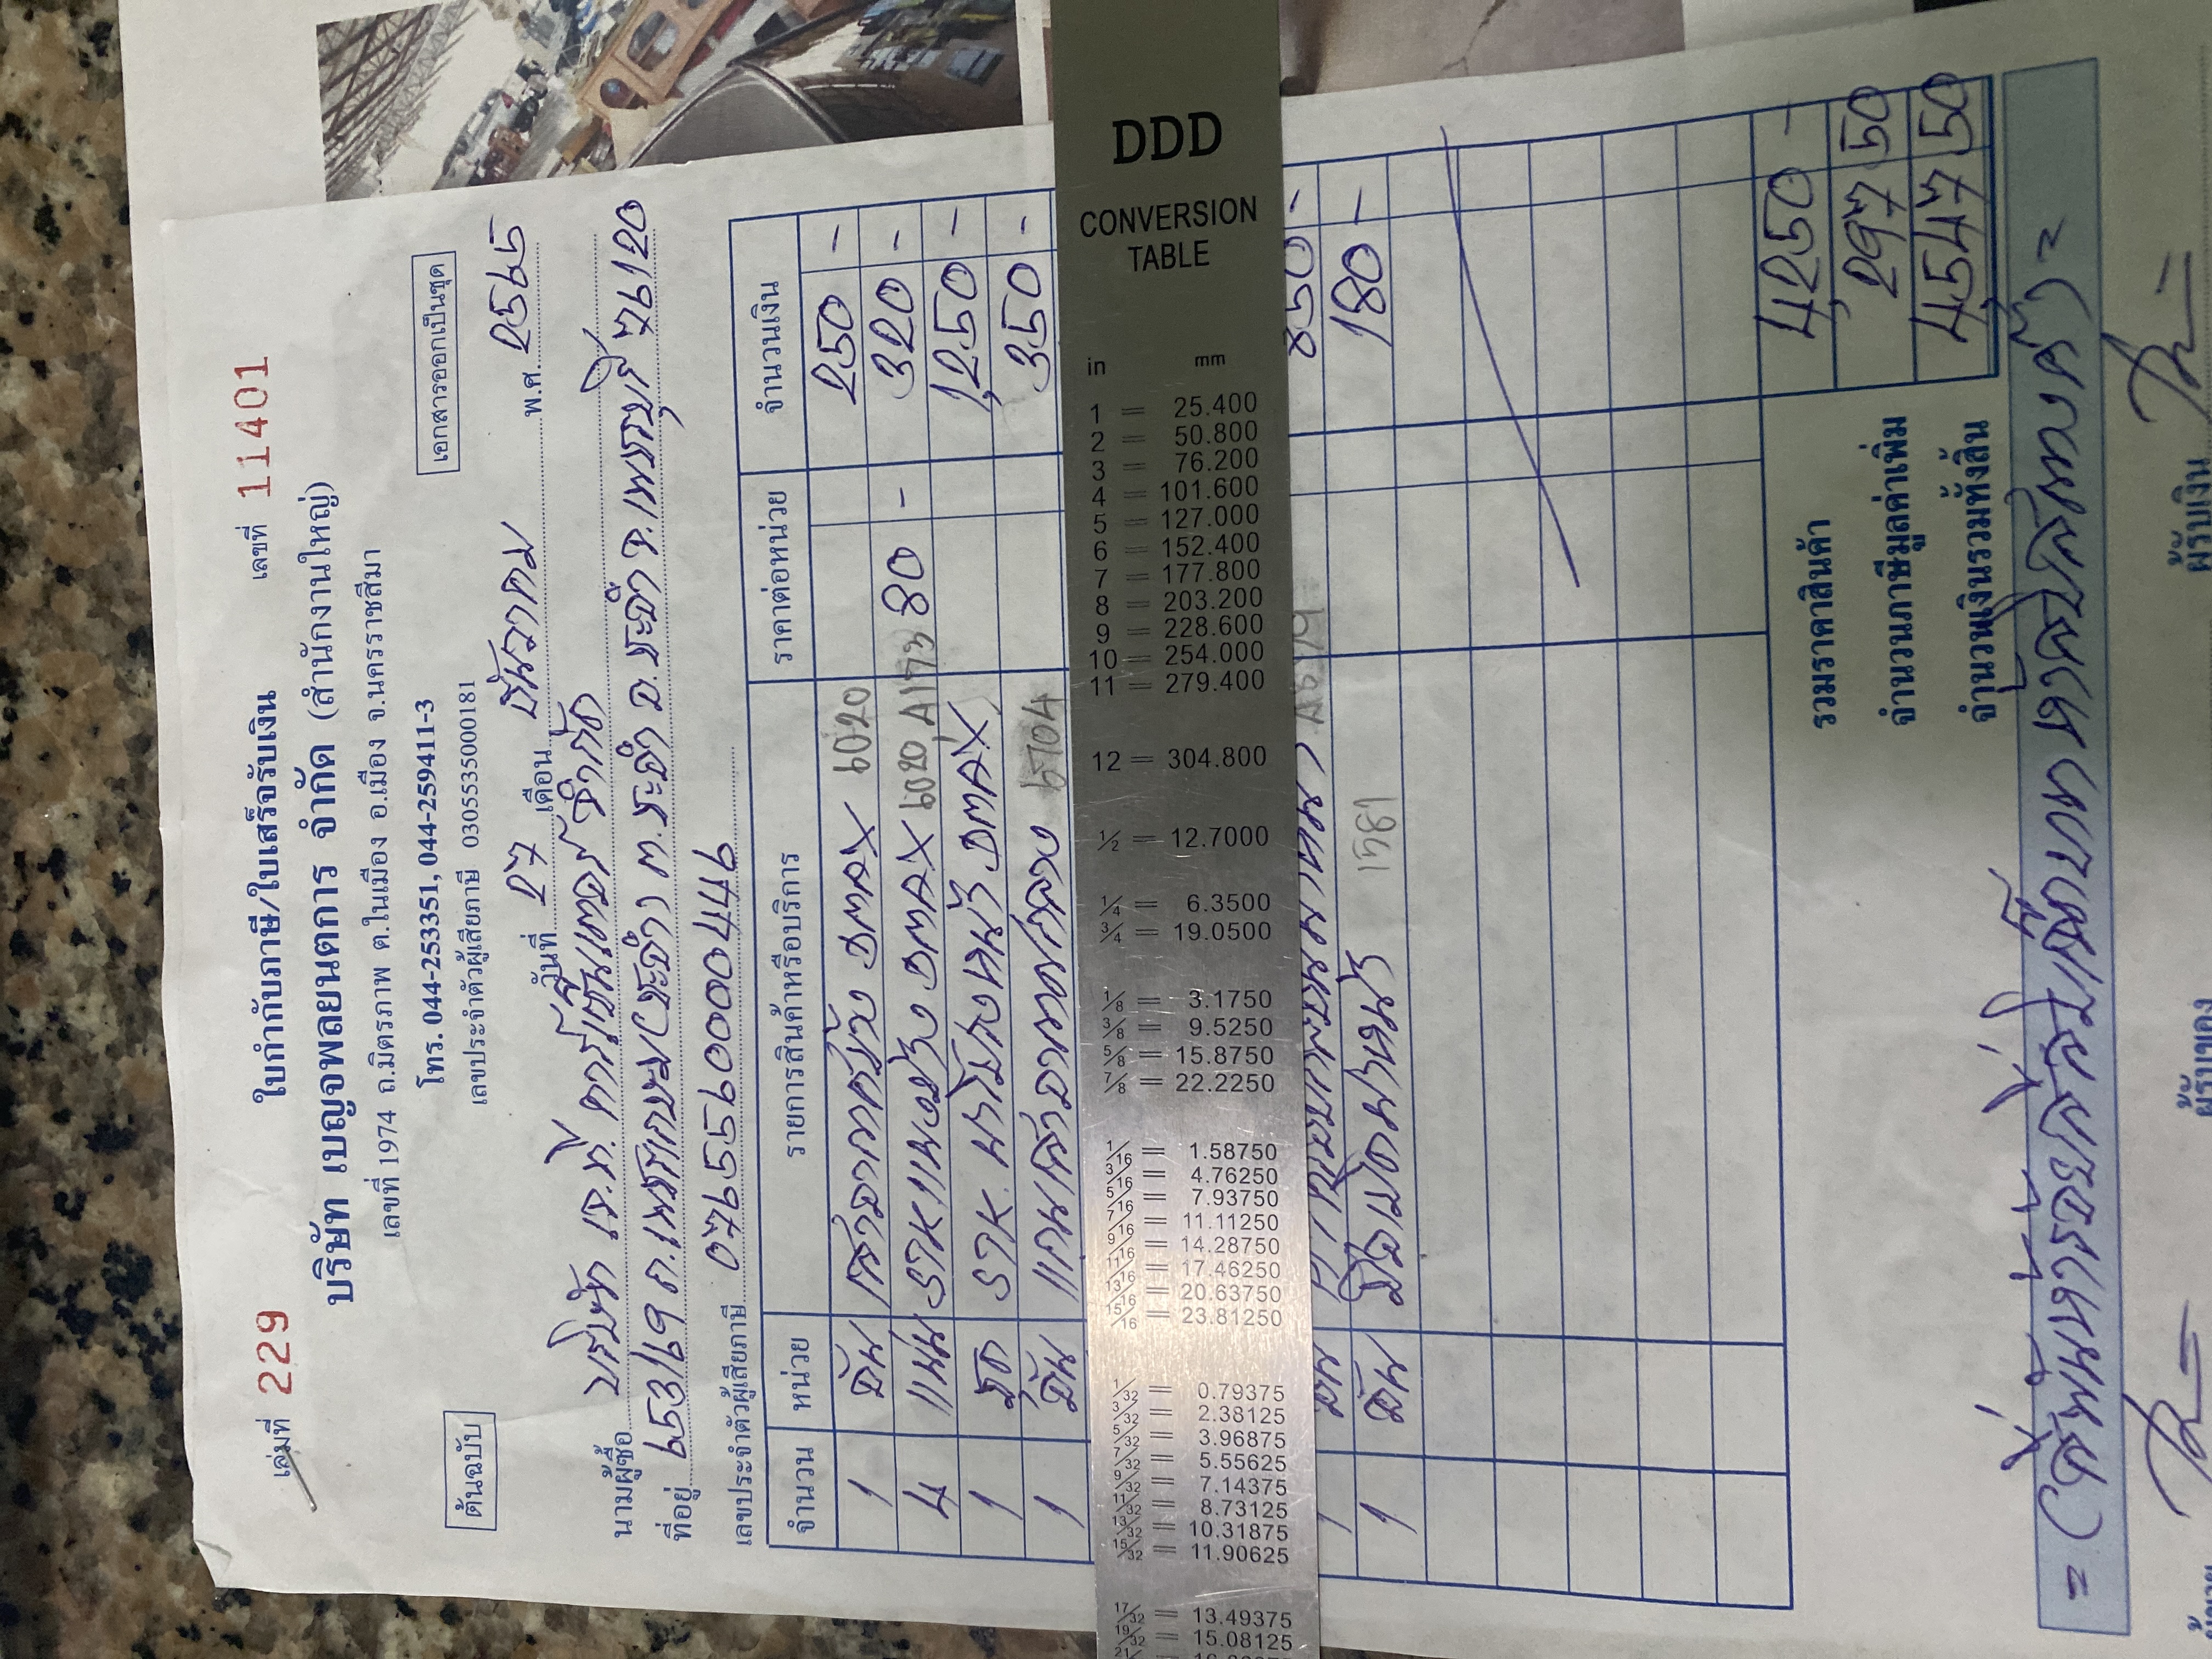 เล่มที่ 229 ใบกำกับภาษี/ใบเสร็จรับเงิน เลขที่ 11401
บริษัท เบญจพลยนตการ จำกัด (สำนักงานใหญ่)
เลขที่ 1974 ถ.มิตรภาพ ต.ในเมือง อ.เมือง จ.นครราชสีมา
ต้นฉบับ โทร. 044-253351, 044-259411-3 เอกสารออกเป็นชุด
เลขประจำตัวผู้เสียภาษี 0305535000181
วันที่ 27 เดือน ธันวาคม พ.ศ. 2565
นามผู้ซื้อ บริษัท เจ.ที. คาร์เซ็นเตอร์ จำกัด
ที่อยู่ 653/69 ถ.เพชรเกษม (ชะอำ) ต.ชะอำ อ.ชะอำ จ.เพชรบุรี 76120
เลขประจำตัวผู้เสียภาษี 0765590000449
จำนวน หน่วย รายการสินค้าหรือบริการ ราคาต่อหน่วย จำนวนเงิน
1 อัน DMAX 6020 250 -
4 แผ่น DMAX 6020 80 - 320 -
1 ชุด DMAX 1,250 -
1 อัน 350 -
1 อัน 850 -
1 อัน 1581 180 -
รวมราคาสินค้า 4,250 -
จำนวนภาษีมูลค่าเพิ่ม 297 50
จำนวนเงินรวมทั้งสิ้น 4,547 50
= (สี่พันห้าร้อยสี่สิบเจ็ดบาทห้าสิบสตางค์) =
ผู้รับของ
ผู้รับเงิน
DDD
CONVERSION
TABLE
in mm
1 = 25.400
2 = 50.800
3 = 76.200
4 = 101.600
5 = 127.000
6 = 152.400
7 = 177.800
8 = 203.200
9 = 228.600
10 = 254.000
11 = 279.400
12 = 304.800
1/2 = 12.7000
1/4 = 6.3500
3/4 = 19.0500
1/8 = 3.1750
3/8 = 9.5250
5/8 = 15.8750
7/8 = 22.2250
1/16 = 1.58750
3/16 = 4.76250
5/16 = 7.93750
7/16 = 11.11250
9/16 = 14.28750
11/16 = 17.46250
13/16 = 20.63750
15/16 = 23.81250
1/32 = 0.79375
3/32 = 2.38125
5/32 = 3.96875
7/32 = 5.55625
9/32 = 7.14375
11/32 = 8.73125
13/32 = 10.31875
15/32 = 11.90625
17/32 = 13.49375
19/32 = 15.08125